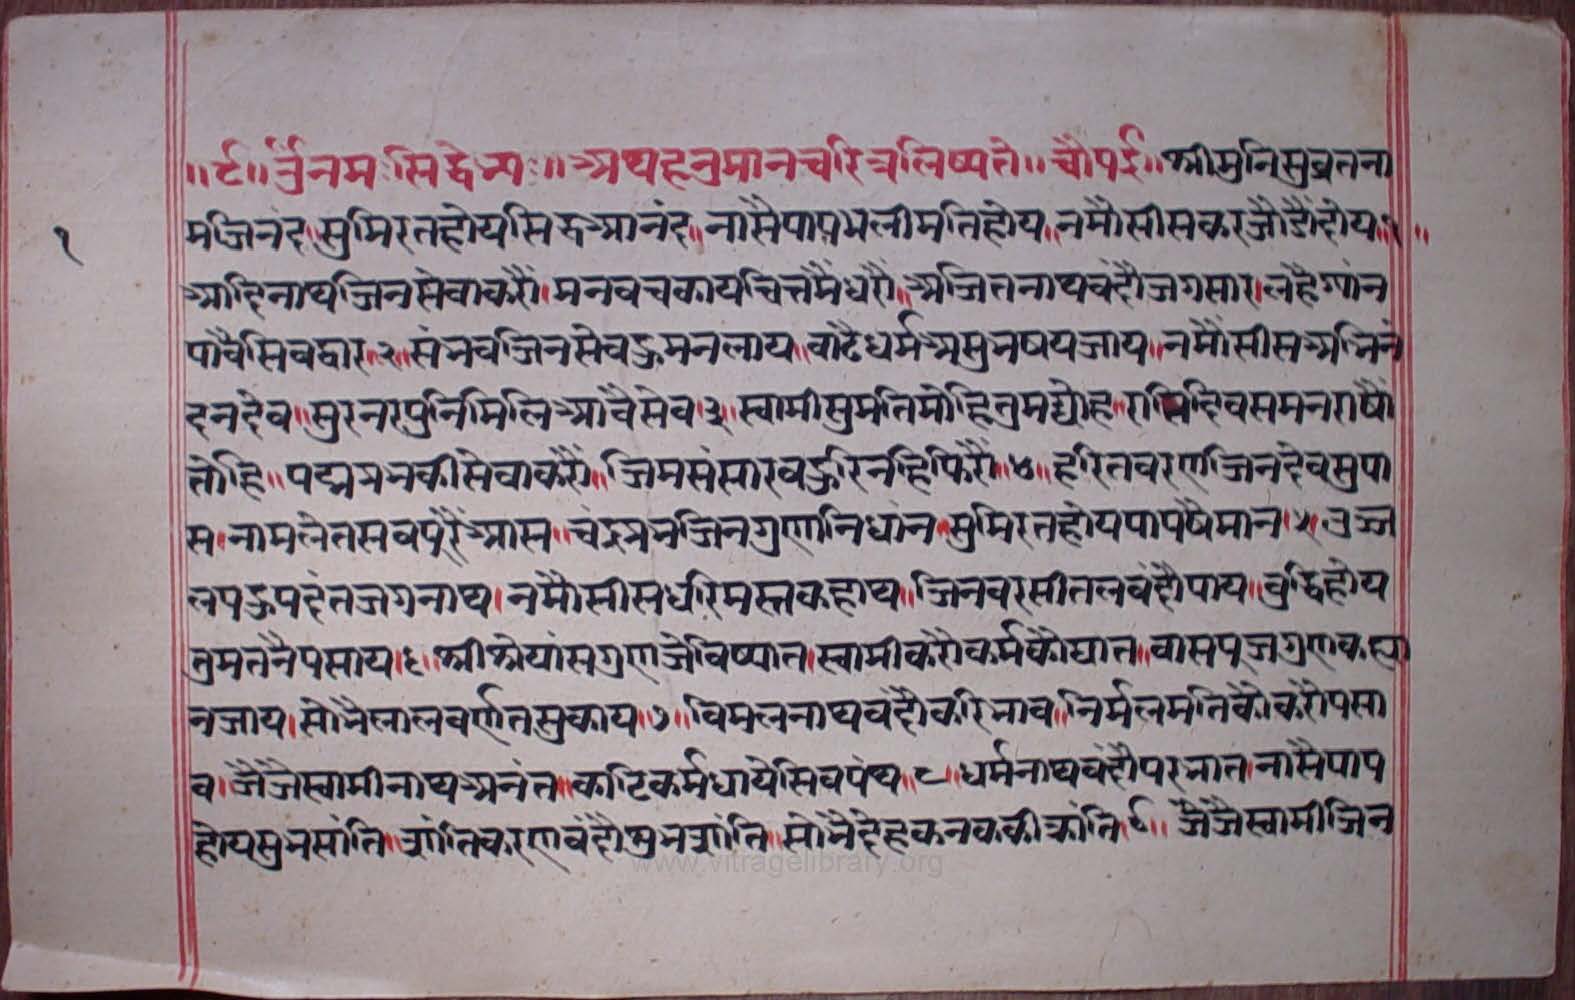 ॥र्द॥ र्नुनमःसिद्धेभ्यः॥ अथहनुमानचरित्रलिष्यते॥ चौपई॥ श्रीमुनिसुव्रतना
मजिनंद।सुमिरतहोयसिद्धआनंद॥नासैपापभलीमतिहोय॥नमौसीसकरजौडौंदोय॥१॥
१
आदिनाथजिनसेवाकरौं।मनवचकायचित्तमैंधरौं॥अजितनाथवंदौजगसार।लहैग्यांन
पावैसिवद्वार॥२॥संभवजिनसेवहुमनलाय॥वाढैधर्मअसुभषयजाय॥नमौंसीसअभिनं
दनदेव॥सुरनरपुनिमिलिआवैसेव॥३॥स्वामीसुमतिमोहितुमद्योह॥रात्रिदिवसमनराषौं
तोहि॥पद्मप्रभकीसेवाकरौं॥जिमसंसारवहुरिनहिफिरौं॥४॥हरितवरणजिनदेवसुपा
स।नामलेतसवपूरैंआस॥चंद्रप्रभजिनगुणनिधांन॥सुमिरतहोयपापषैमान॥५॥उज्ज
लपहुपदंतजगनाथ।नमौसीसधरिमस्तकहाथ॥जिनवरसीतलवंदौपाय॥वुद्धिहोय
तुमतनैपसाय॥६॥श्रीश्रेयांसगुणजेविष्यात।स्वामीकरौकर्मकौघात॥वासपूजगुणकह्या
नजाय।सोभैलालवर्णतसुकाय॥७॥विमलनाथवंदौकरिभाव॥निर्मलमतिकौकरौपसा
व।जैजैस्वामीनाथअनंत॥काटिकर्मधायेसिवपंथ॥८॥धर्मनाथवंदौपरभात।नासैपाप
होयसुभसांति॥शांतिकरणवंदौशुभशांति॥सोभैदेहकनककीक्रांति॥९॥जैजैस्वामीजिन
www.vitragelibrary.org